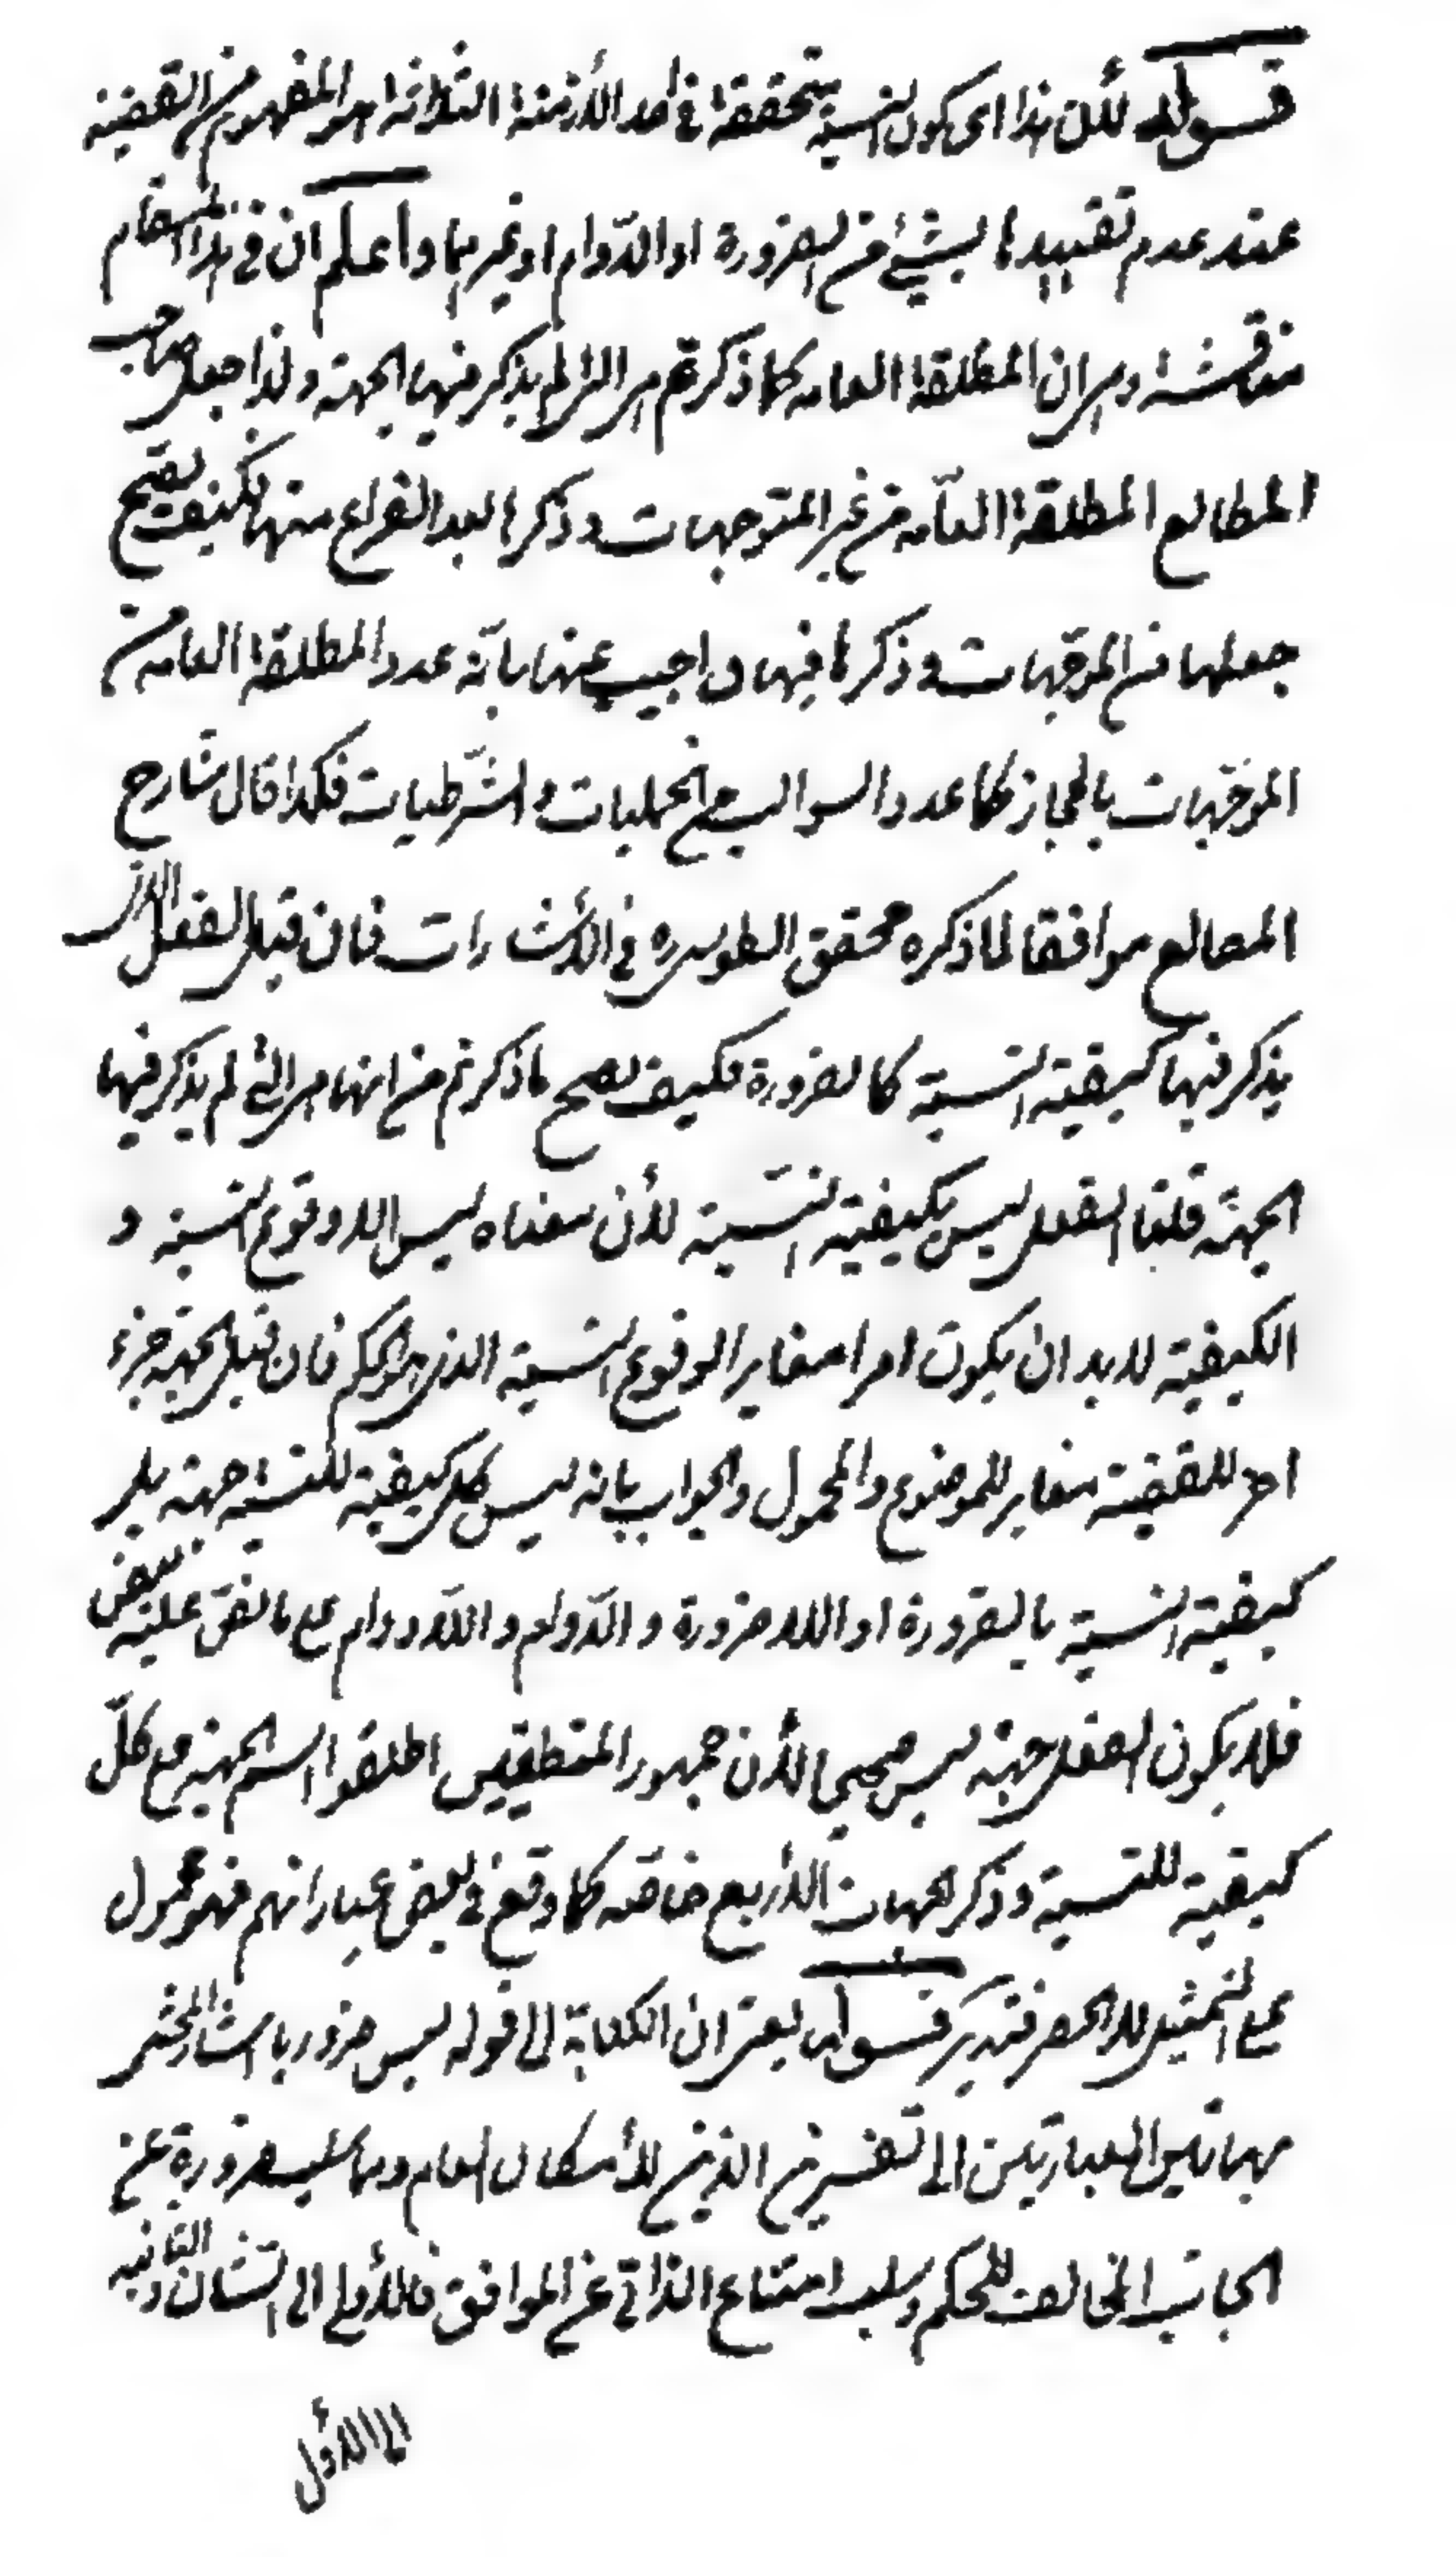 قوله لأن هذا اى كون النسبة متحققة في احد الأزمنة الثلاثة هو المفهوم من القضية
عند عدم تقييدها بشئ من الضرورة او الدّوام او غيرهما واعلم ان في هذا المقام
مناقشة وهى ان المطلقة العامه كما ذكرتم هى التى لم يذكر فيها الجهة ولذا جعل صاحب
المطالع المطلقة العامّه من غير الموجهات و ذكرها بعد الفراغ منها فكيف يصح
جعلها من الموجّهات و ذكرها فيها و اجيب عنها بانّه عدد المطلقة العامه من
الموجّهات بالمجاز كما عدد السوالب من الحمليات و الشّرطيات هكذا قال شارح
المطالع موافقا لما ذكره محقق الطوسى ره في الأشارات فان قيل الفعل الذى
يذكر فيها كيفية النسبة كالضرورة فكيف يصح ما ذكرتم من انها هى التى لم يذكر فيها
الجهة قلنا الفعل ليس بكيفية النّسبة لأن معناه ليس الا وقوع النسبة و
الكيفية لا بد ان يكون امرا مغايرا لوقوع النسبة الذى هو الحكم فان قيل الجهة جزء
اخر للقضية مغاير للموضوع والمحمول والجواب بانه ليس كل كيفية للنسبة جهة بل هى
كيفية النسبة بالضرورة او اللاضرورة و الدّوام و اللادوام على ما اتفق عليه بعض
فلا يكون الفعل جهة ليس صحيحا لأن جمهور المنطقيين اطلقوا اسم الجهة مع كلّ
كيفية للنسبة و ذكر الجهات الأربع خاصّة كما وقع في بعض عباراتهم فهو محمول
على التمثيل لا الحصر فتدبّر قوله بمعنى ان الكتابة الى قوله ليس ضروريا اشار المحشى
بهاتين العبارتين الى تفسيرين الذين للأمكان العام وهما سلب ضرورة عن
الجانب المخالف للحكم و سلب امتناع الذاتى عن الموافق فالأولى الى الثانى والثانية
الى الأول